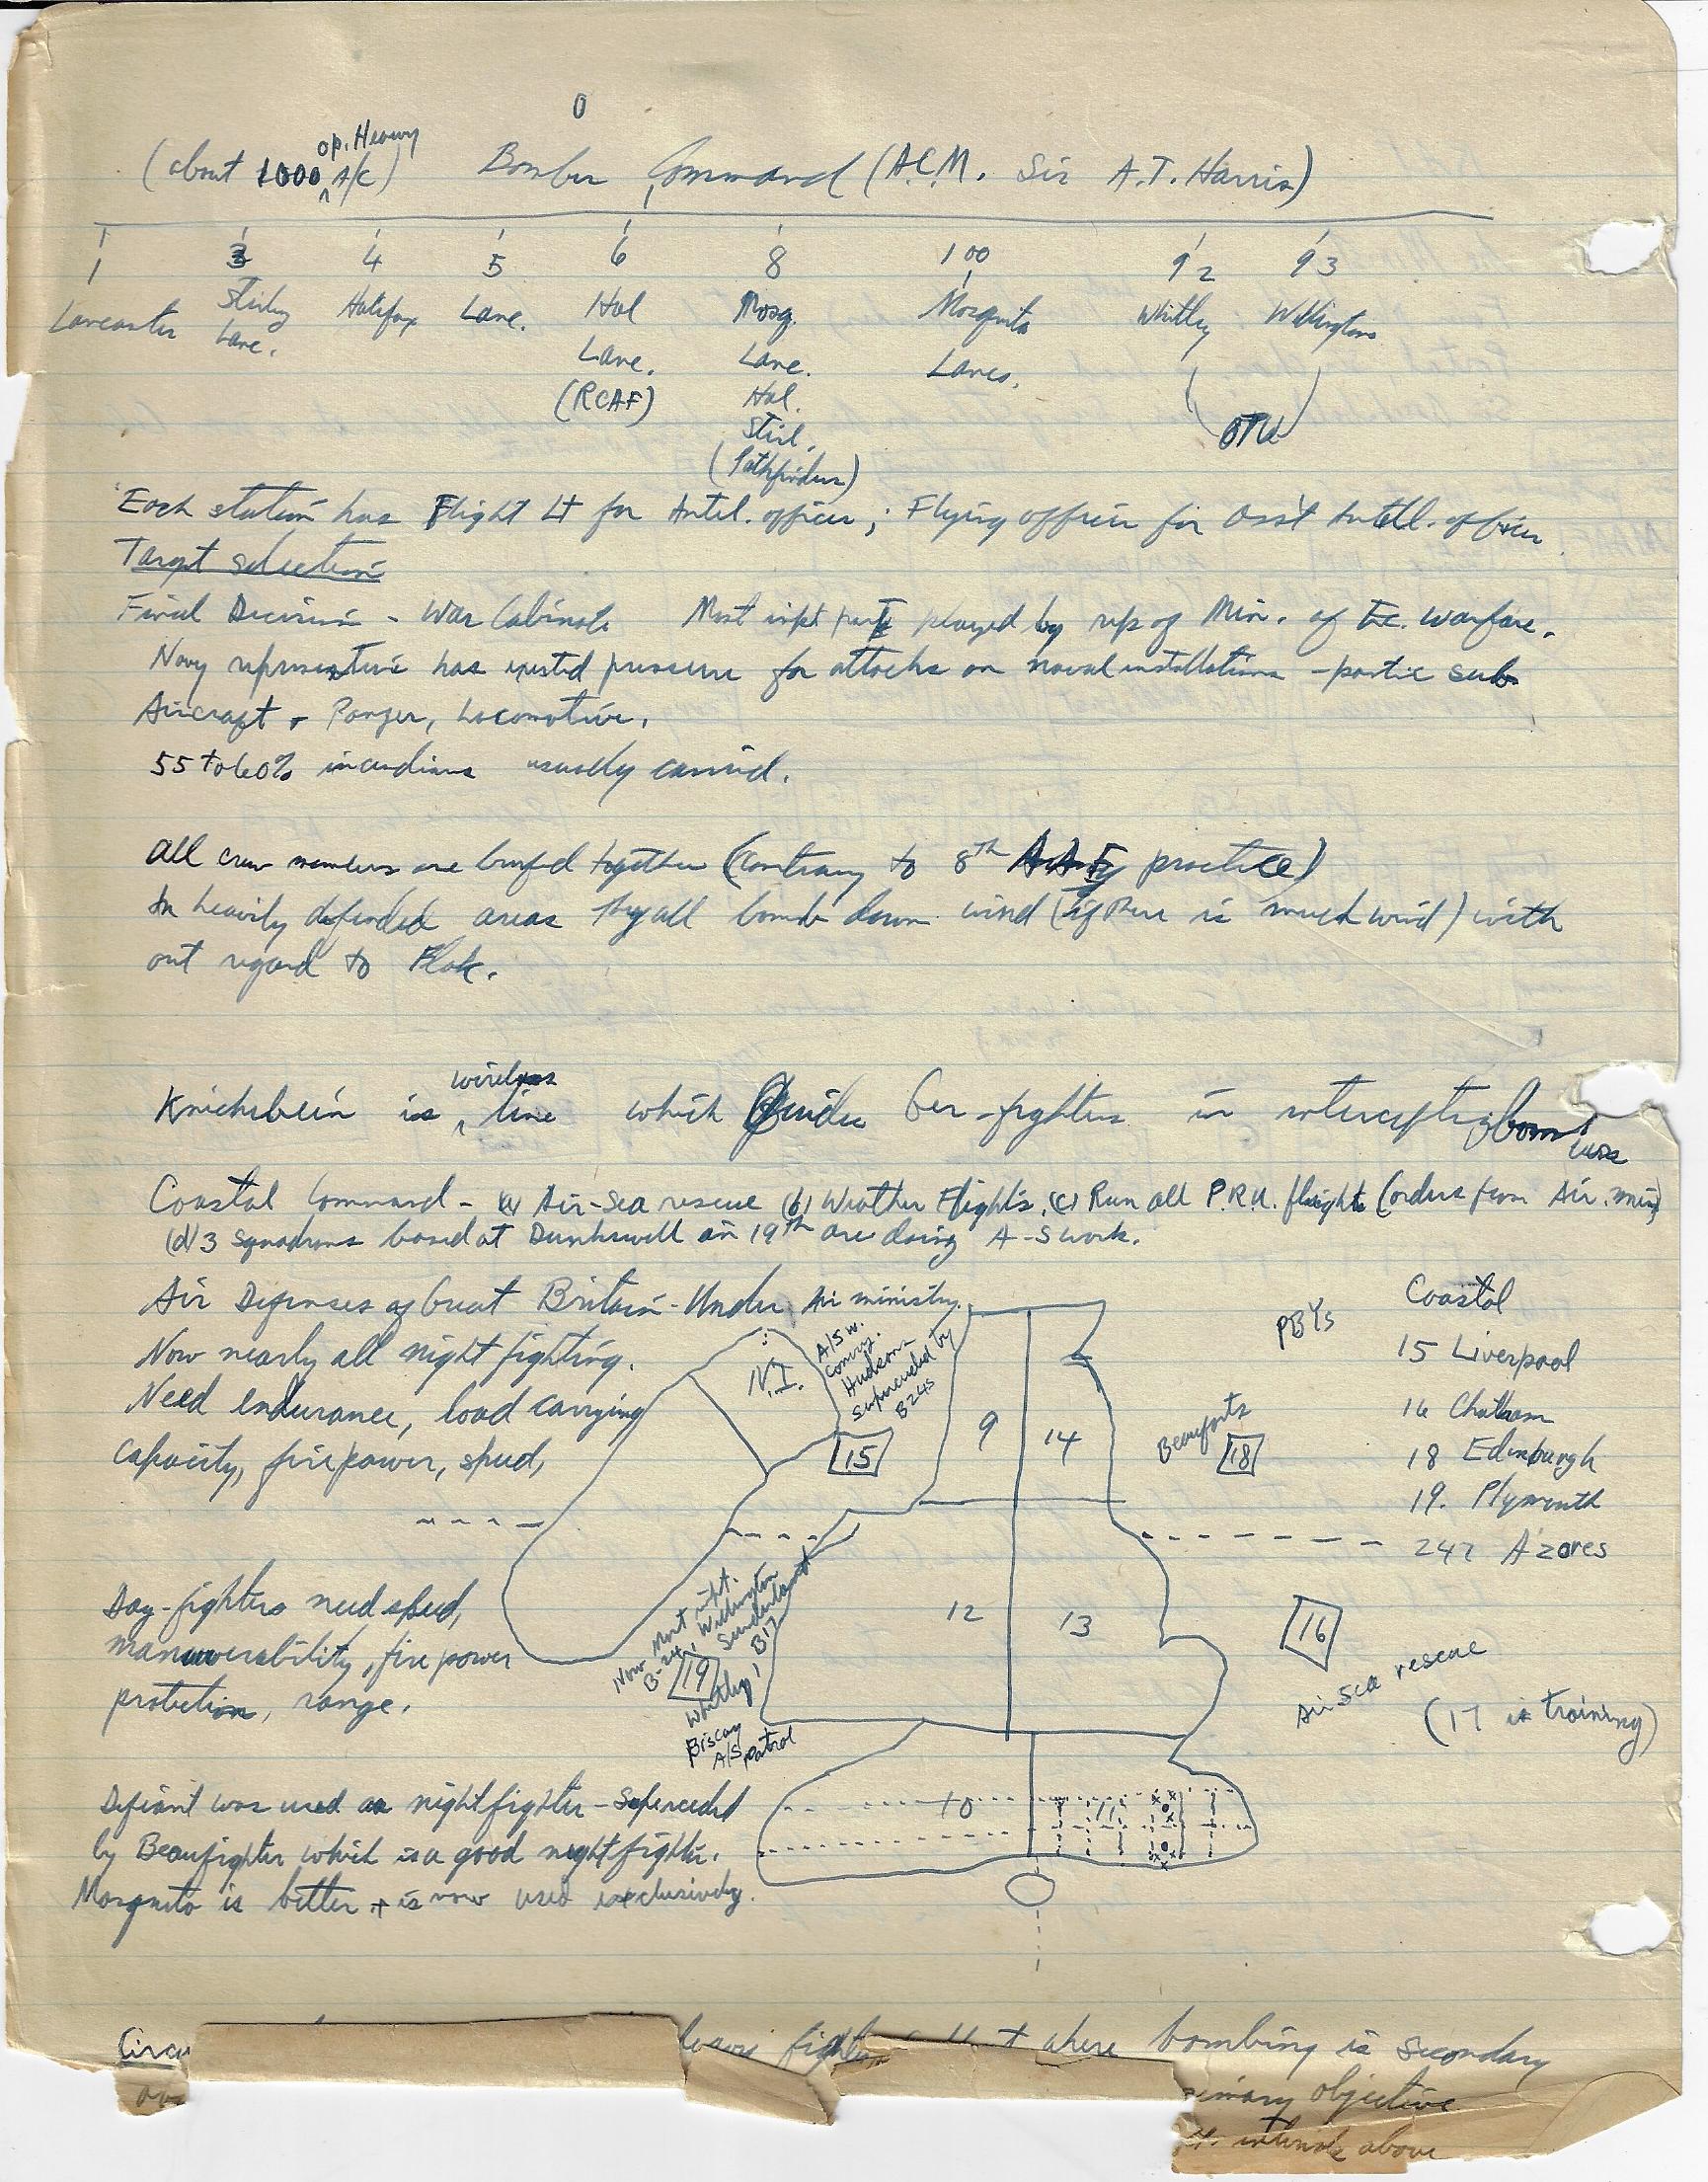 0
op. Heavy
(about 1000 A/C) Bomber Command (A.C.M. Sir A.T. Harris)
1 3 4 5 6 8 100 92 93
Lancaster Stirling Halifax Lanc. Hal Mosq. Mosquito Whitley Wellingtons
Lanc. Lanc. Lanc. Lancs.
(RCAF) Hal.
Stirl. OTU
(Pathfinders)
Each station has Flight Lt for Intel. officer; Flying officer for Ass't Intell. officer
Target selection
Final Decision - War Cabinet Most impt part played by rep of Min. of Ec. Warfare.
Navy representative has exerted pressure for attacks on naval installations - partic sub
Aircraft + Panzer, Locomotive.
55 to 60% incendiaries usually carried.
All crew members are briefed together (contrary to 8th AAF practice)
In heavily defended areas they all bomb down wind (if there is much wind) with
out regard to Flak.
wireless
Knickebein is line which guides Ger-fighters in intercepting bombers
Coastal Command - (a) Air-Sea rescue (b) Weather Flights. (c) Run all P.R.U. flights (orders from Air. min)
(d) 3 squadrons based at Dunkeswell in 19th are doing A-S work.
Air Defenses of Great Britain - Under Air ministry.
Now nearly all night fighting.
Need endurance, load carrying
capacity, fire power, speed,
N.I.
A/S w.
convoy.
Hudsons
superceded by
B24s
15
9 14
PBYs
Beauforts
18
Coastal
15 Liverpool
16 Chatham
18 Edinburgh
19. Plymouth
247 Azores
Day-fighters need speed,
manuverability, fire power
protection, range.
Now Most impt.
B-24, Wellington
Sunderland
B17
19
Whitley
Biscay
A/S patrol
12 13
16
Air Sea rescue
(17 is training)
Defiant was used as nightfighter - Superceded
by Beaufighter which is a good nightfighter.
Mosquito is better + is now used exclusively.
10 11
fighter where bombing is secondary
objective
above